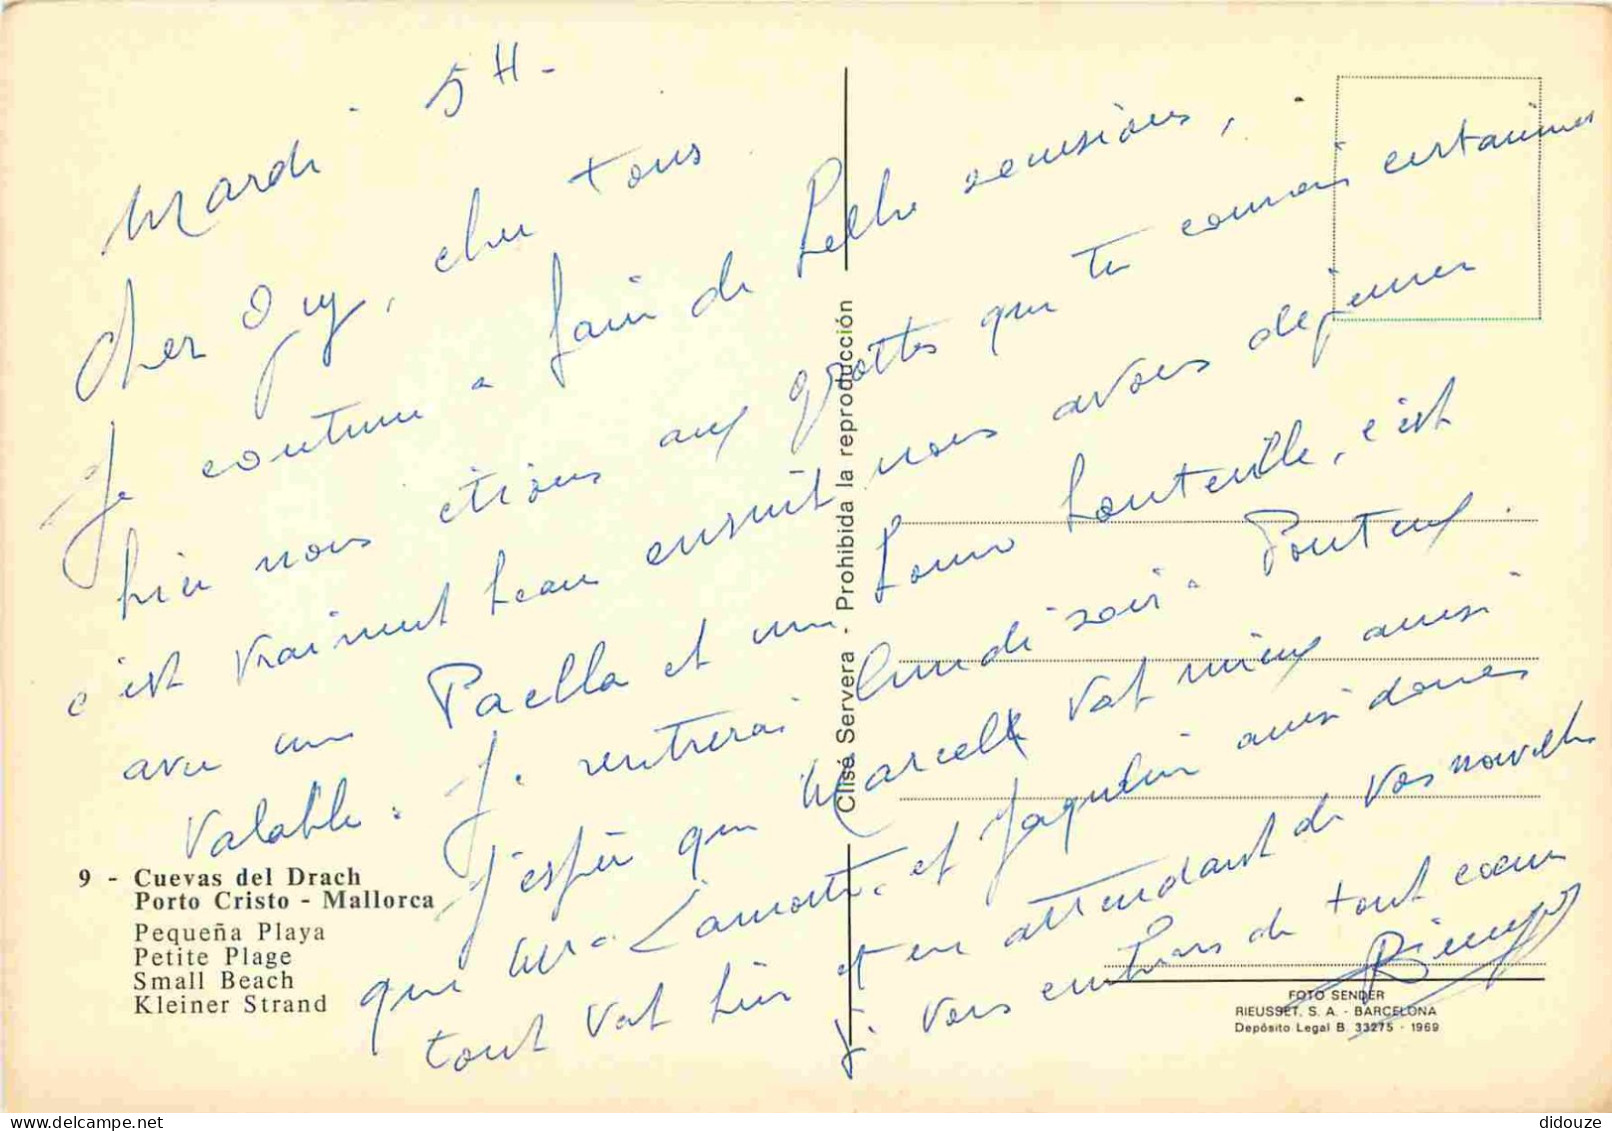 Mardi 5 H -
Cher Guy, cher tous
Je continue a fair de belle excusions,
hier nous étions aux grottes que tu connais certainnes
c'est vraiment beau ensuit nous avons dejeuner
avec une Paella et un bonne bouteille, c'est
Valable. Je rentrerai lundi soir a Ponteux.
J'espère que Marcelle vat mieux aussi
que Mr Lamothe. et Jaquelin aussi donnes
tout vat bien et en attendant de vos nouvelles
je vous embrass de tout cœur
9 - Cuevas del Drach
Porto Cristo - Mallorca
Pequeña Playa
Petite Plage
Small Beach
Kleiner Strand
Clisé Servera - Prohibida la reproducción
FOTO SENDER
RIEUSSET, S. A. - BARCELONA
Depósito Legal B. 33275 - 1969
didouze